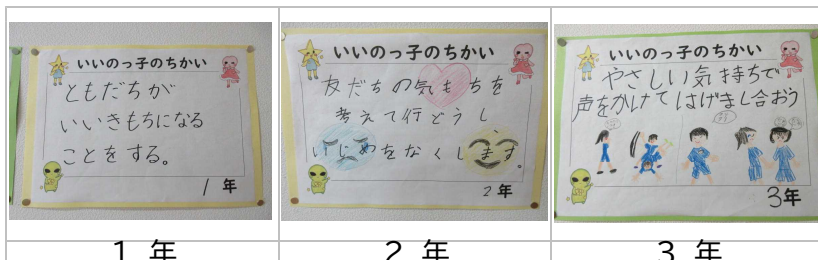 いいのっ子のちかい
ともだちが
いいきもちになる
ことをする。
1年
いいのっ子のちかい
友だちの気もちを
考えて行どうし、
いじめをなくします。
2年
いいのっ子のちかい
やさしい気持ちで
声をかけてはげまし合おう
3年
1 年
2 年
3 年